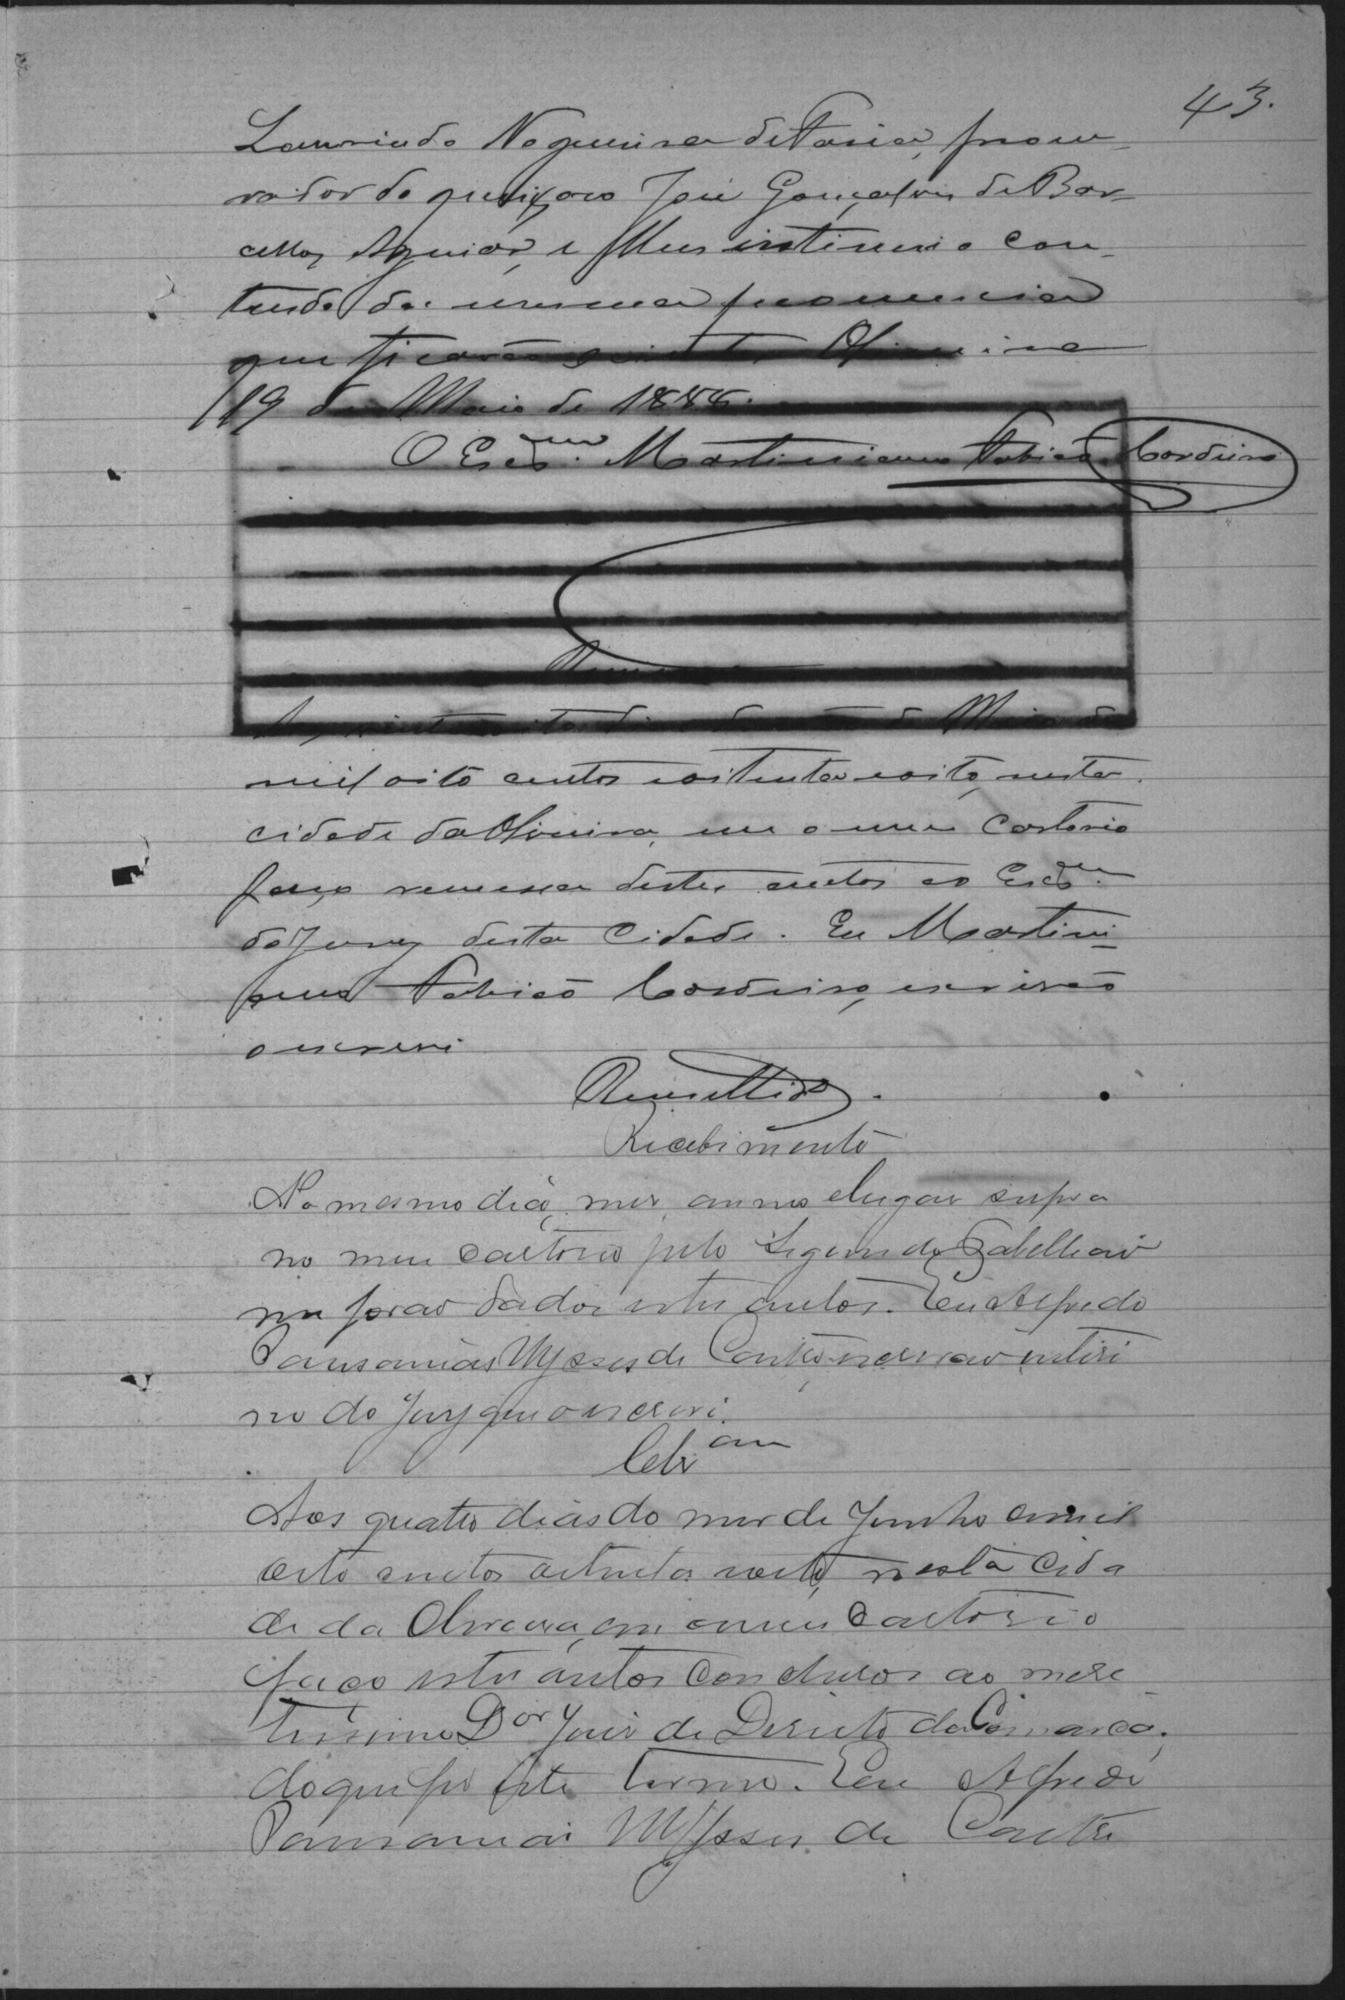 43.
Laurindo Nogueira de Faria, procu-
rador do queixoso José Gonçalves de Bar-
cellos Aguiar, e lhes intimei o con-
teudo da mesma pronuncia
que ficarão scientes Oliveira
19 de Maio de 1888.
O Escr.am Martiniano Fabião Cordeiro
Remessa
dias do mes de Maio de
mil oito centos e oitenta e oito, nesta
cidade da Oliveira, em o meu Cartorio
faço remessa destes autos ao Escr.am
do Jury desta Cidade. Eu Martini-
anno Fabião Cordeiro, escrivão
o escrevi
Remettido.
Recebimento
No mesmo dia, mez, anno e lugar supra
no meu Cartorio pelo Segundo Tabelleão
me forão dados estes autos. Eu Alfredo
Pausanias Ulysses de Castro, escrivão interi
no do Jury que o escrevi.
Cls.am
Aos quatro dias do mez de Junho de mil
oito centos oitenta e oito, nesta Cida
de da Oliveira, em o meu Cartorio
faço estes autos Conclusos ao mere
tissimo D.or Juiz de Direito da Comarca,
do que fiz este termo. Eu Alfredo
Pausanias Ulysses de Castro